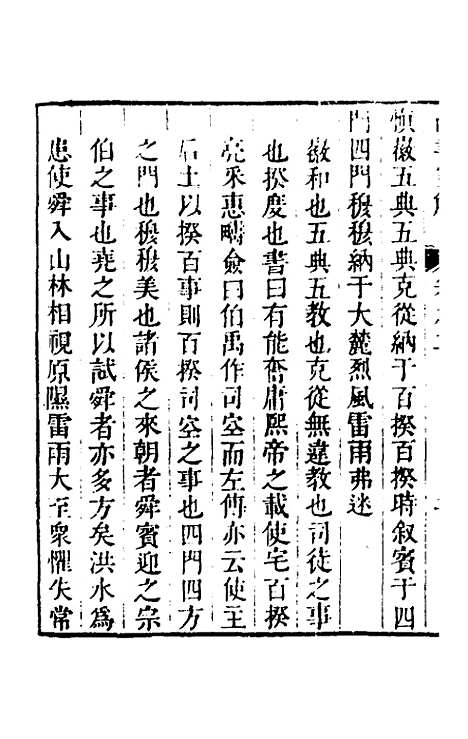 慎徽五典五典克從納于百揆百揆時叙賓于四
門四門穆穆納于大麓烈風雷雨弗迷
徽和也五典五教也克從無違教也司徒之事
也揆度也書曰有能奮庸熙帝之載使宅百揆
亮采惠疇僉曰伯禹作司空而左傳亦云使主
后土以揆百事則百揆司空之事也四門四方
之門也穆穆美也諸侯之來朝者舜賓迎之宗
伯之事也堯之所以試舜者亦多方矣洪水為
患使舜入山林相視原隰雷雨大至衆懼失常